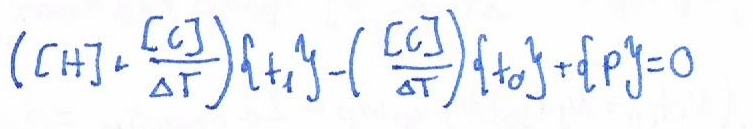 ([H] + [C]/ΔT){t₁} - ([C]/ΔT){t₀} + {P} = 0